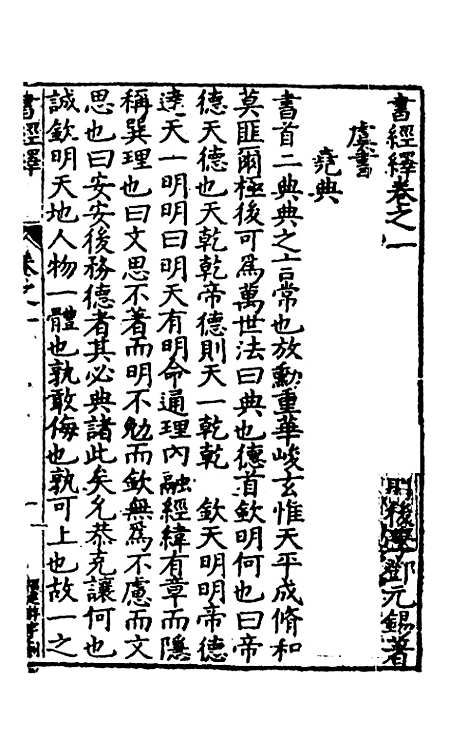 書經繹卷之一
後學鄧元錫著
虞書
堯典
書首二典典之言常也放勳重華峻玄惟天平成脩和
莫匪爾極後可為萬世法曰典也德首欽明何也曰帝
德天德也天乾乾帝德則天一乾乾　欽天明明帝德
達天一明明曰明天有明命通理內融經緯有章而隱
稱巽理也曰文思不著而明不勉而欽無為不慮而文
思也曰安安後務德者其必典諸此矣允恭克讓何也
誠欽明天地人物一體也孰敢侮也孰可上也故一之
書經繹
卷之一
一